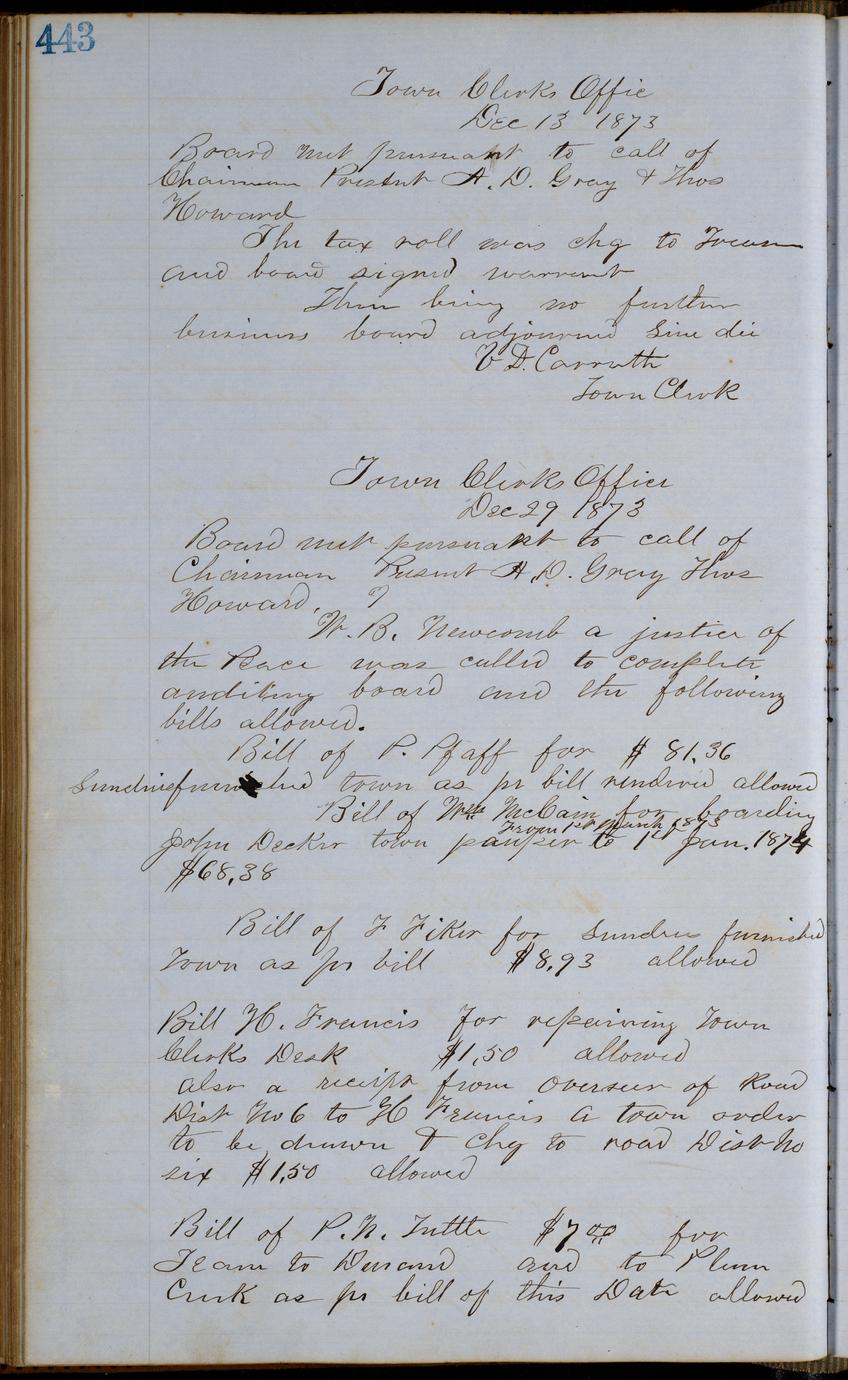 443
Town Clerks Offic
Dec 13 1873
Board met pursuant to call of
Chairman Present A. D. Gray & Thos
Howard
The tax roll was chg to Treasur
and board signed warrant
There being no further
business board adjourned Sine die
V D. Carruth
Town Clerk
Town Clerks Office
Dec 29 1873
Board met pursuant to call of
Chairman Present A. D. Gray Thos
Howard,
W. B. Newcomb a justice of
the Peace was called to complete
auditing board and the following
bills allowed.
Bill of P. Pfaff for $ 81.36
Sundries furnished town as pr bill rendered allowed
Bill of Wm McCain for boarding
From 1st March 1873
John Decker town pauper to 1st Jan. 1874
$68.38
Bill of F Fiker for Sundres furnished
Town as pr bill $8.93 allowed
Bill H. Francis for repairing Town
Clerks Desk $1.50 allowed
also a receipt from overseer of Road
Dist No 6 to H Francis a town order
to be drawn & chg to road Dist No
six $1.50 allowed
Bill of P. N. Tuttle $7 00 for
Team to Durand and to Plum
Creek as pr bill of this Date allowed